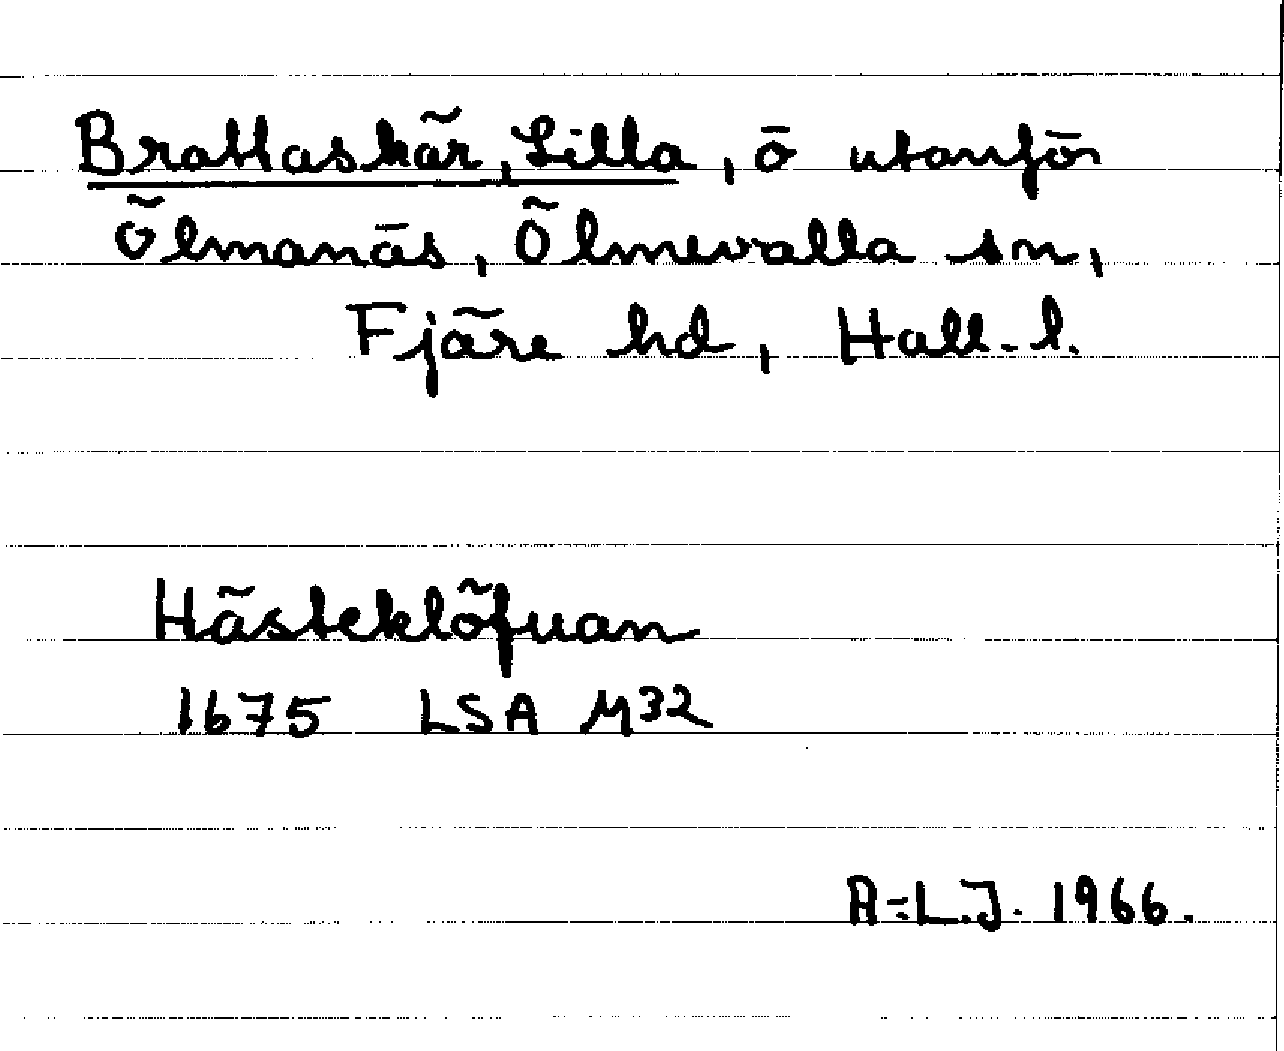 Brattaskär, Lilla, ö utanför
Ölmanäs, Ölmevalla sn,
Fjäre hd, Hall. l.
Hästeklöfuan
1675 LSA M32
A-L.J. 1966.